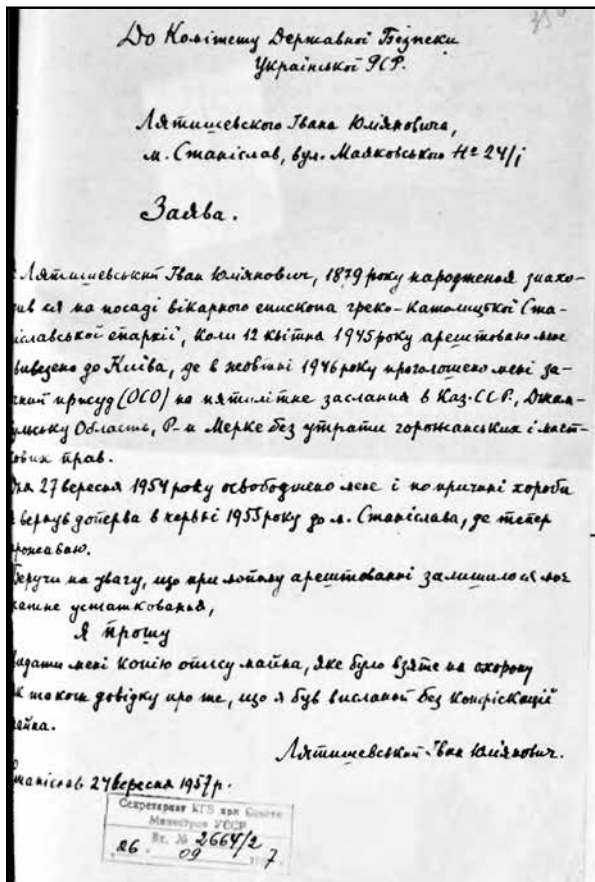 До Комітету Державної Безпеки
Української РСР.
Лятишевского Івана Юліяновича,
м. Станіслав, вул. Маяковського № 24/і
Заява.
Лятишевський Іван Юліянович, 1879 року народження знахо-
ив ся на посаді вікарного епископа греко-Католицкої Ста-
іславської епархії, коли 12 квітна 1945 року арештовано мене
вивезено до Київа, де в жовтні 1946 року проголошено мені за-
чний присуд (ОСО) на пятилітне заслання в Каз. ССР., Джам-
ульську Область, Р-н Мерке без утрати горожанських і маєт-
кових прав.
ня 27 вересня 1954 року освободжено мене і по причині хороби
вернув доперва в червні 1955 року до м. Станіслава, де тепер
рожаваю.
Беручи на увагу, що при мойому арештованні залишилося моє
атне устаткованья,
Я прошу
идати мені копію опису майна, яке було взяте на охорону
к також довідку про те, що я був висланий без конфіскації
айна.
Лятишевський Іван Юліянович.
таніслав 24 вересня 1957 р.
Секретариат КГБ при Совете
Министров УССР
Вх. № 2664/2
26. 09 7